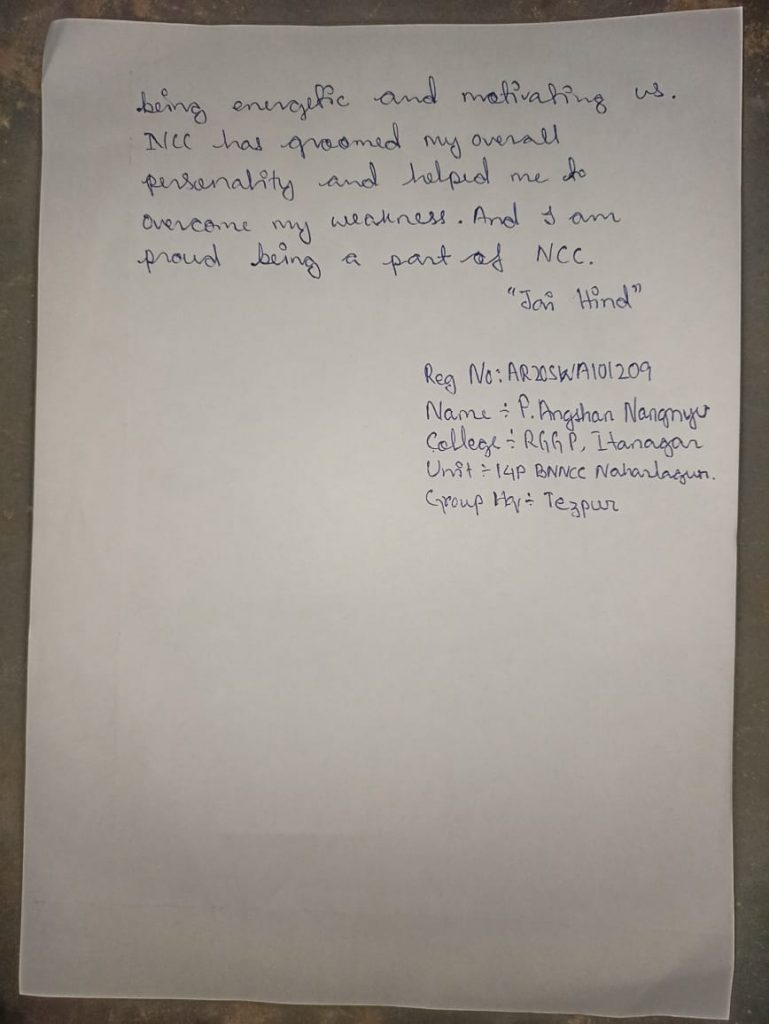 being energetic and motivating us.
NCC has groomed my overall
personality and helped me to
overcome my weakness. And I am
proud being a part of NCC.
"Jai Hind"
Reg No: AR20SWA101209
Name ÷ P. Angshan Nangnyu
College ÷ RGGP, Itanagar
Unit ÷ 14P BNNCC Naharlagun.
Group Hq ÷ Tezpur